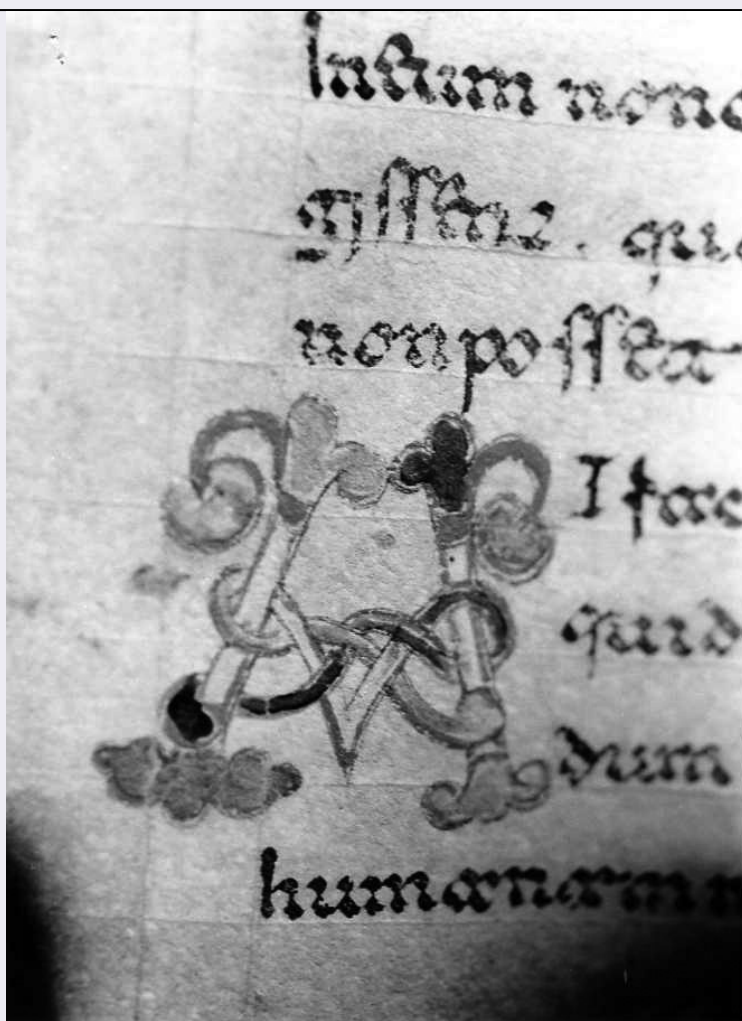 lusum non
gissent. qu
non possent
M I fac
quid
dum
humanarum